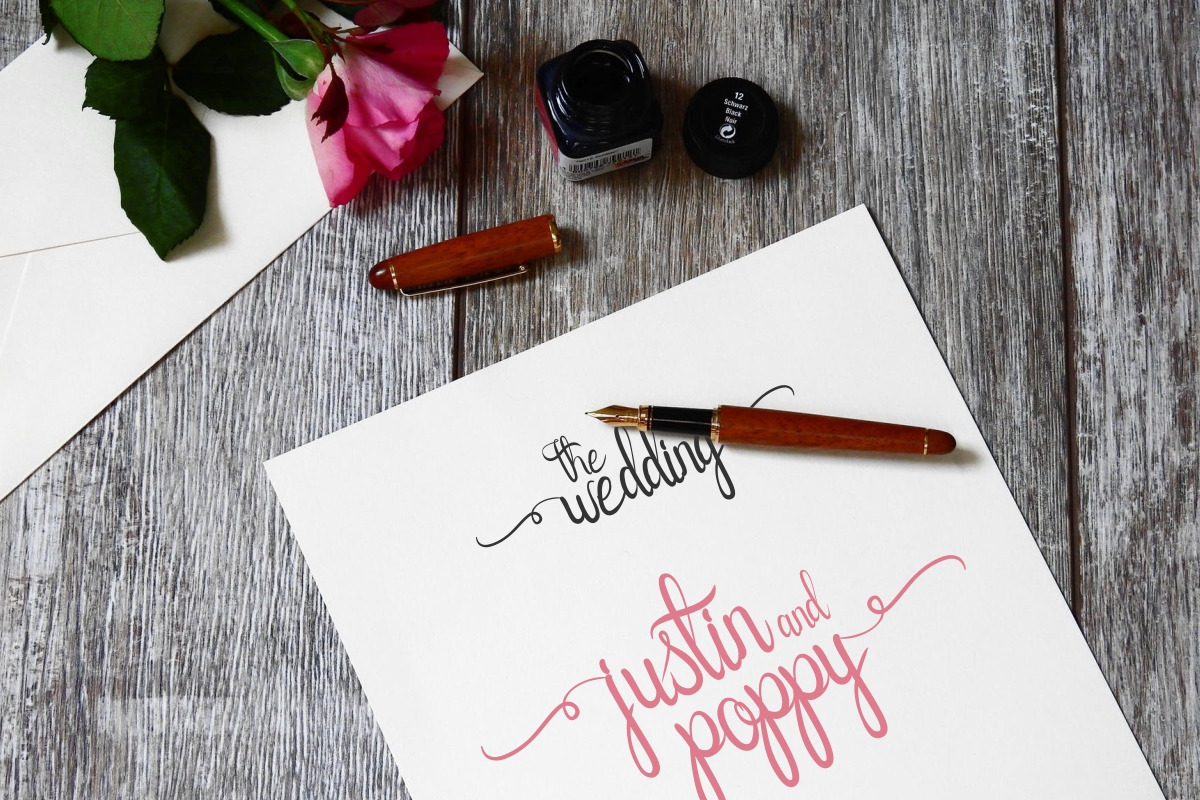 12
Schwarz
Black
Noir
the
wedding
justin and
poppy